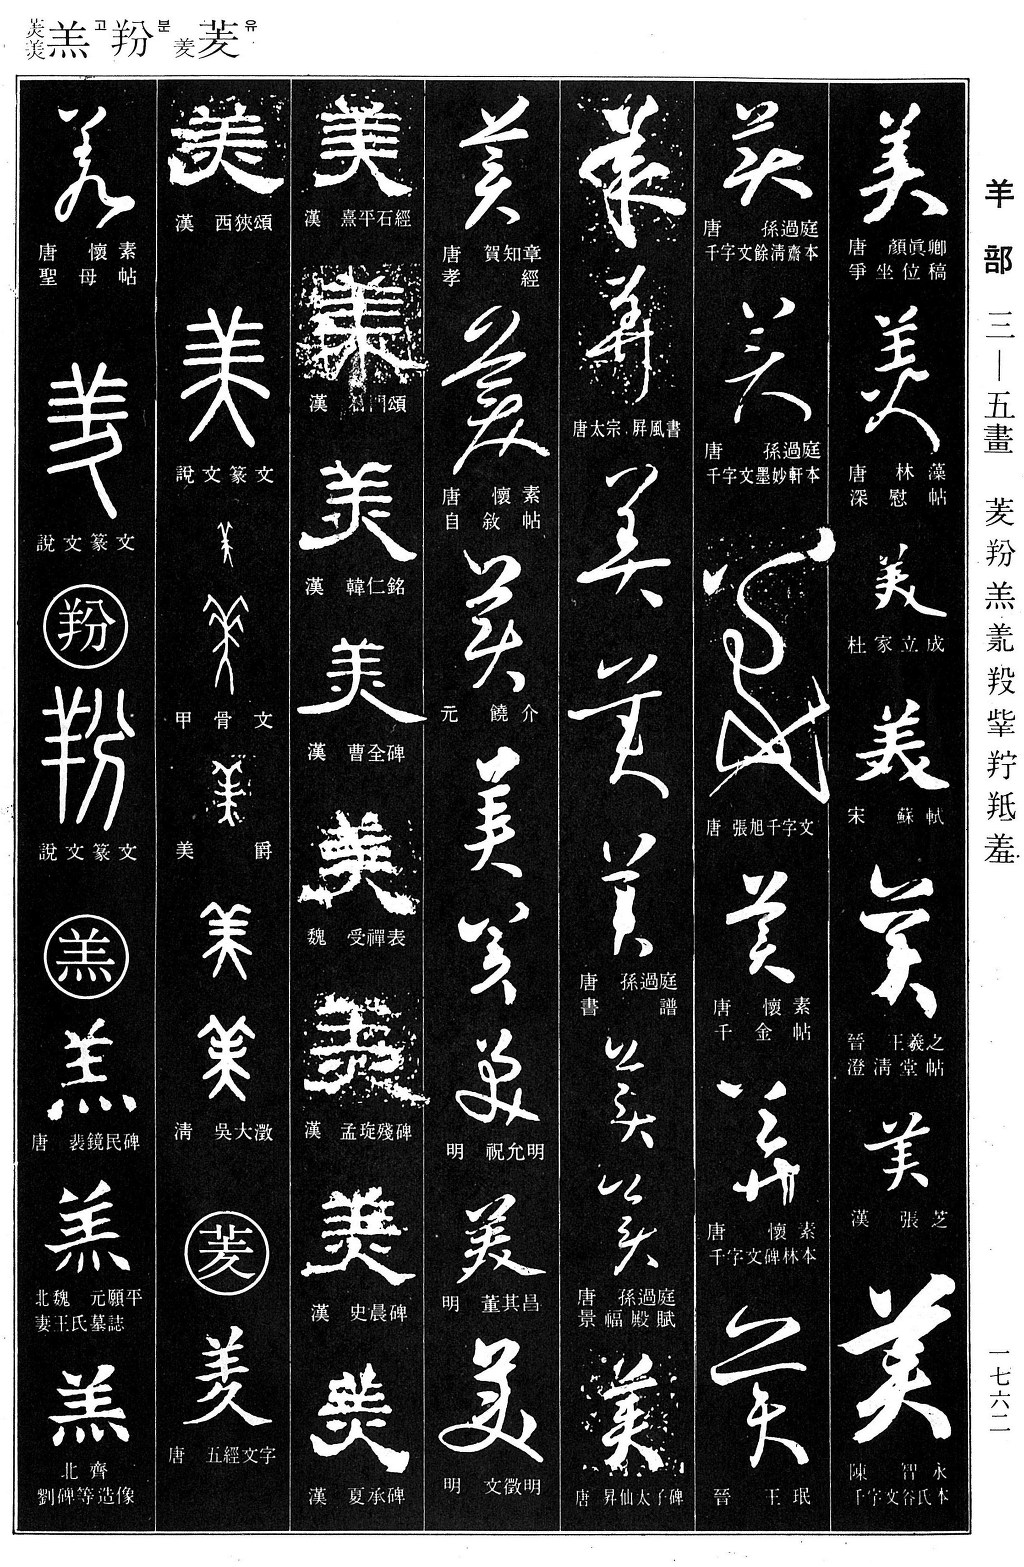 羊部 三—五畫 羑羒羔羌羖羍羜羝羞
一七六二
羑 유
羒 분
羔 고
美
唐 顏眞卿
爭坐位稿
美
唐 林藻
深慰帖
美
杜家立成
美
宋 蘇軾
美
晉 王羲之
澄淸堂帖
美
漢 張芝
美
陳 智永
千字文谷氏本
美
唐 孫過庭
千字文餘淸齋本
美
唐 孫過庭
千字文墨妙軒本
美
唐 張旭千字文
美
唐 懷素
千金帖
美
唐 懷素
千字文碑林本
美
晉 王珉
美
美
唐太宗．屛風書
美
美
美
唐 孫過庭
書譜
美
美
唐 孫過庭
景福殿賦
美
唐 昇仙太子碑
美
唐 賀知章
孝經
美
唐 懷素
自敘帖
美
元 饒介
美
美
美
明 祝允明
美
明 董其昌
美
明 文徵明
美
漢 熹平石經
美
漢 石門頌
美
漢 韓仁銘
美
漢 曹全碑
美
魏 受禪表
美
漢 孟琁殘碑
美
漢 史晨碑
美
漢 夏承碑
美
漢 西狹頌
美
說文篆文
美
美
甲骨文
美
美爵
美
美
淸 吳大澂
羑
羑
唐 五經文字
羑
唐 懷素
聖母帖
羑
說文篆文
羒
羒
說文篆文
羔
羔
唐 裴鏡民碑
羔
北魏 元願平
妻王氏墓誌
羔
北齊
劉碑等造像